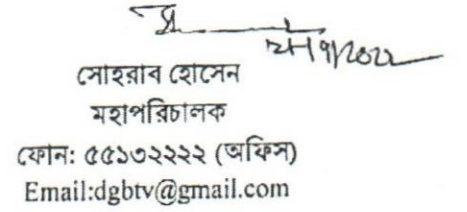 সোহরাব হোসেন
মহাপরিচালক
ফোন: ৫৫১৩২২২২ (অফিস)
Email:dgbtv@gmail.com